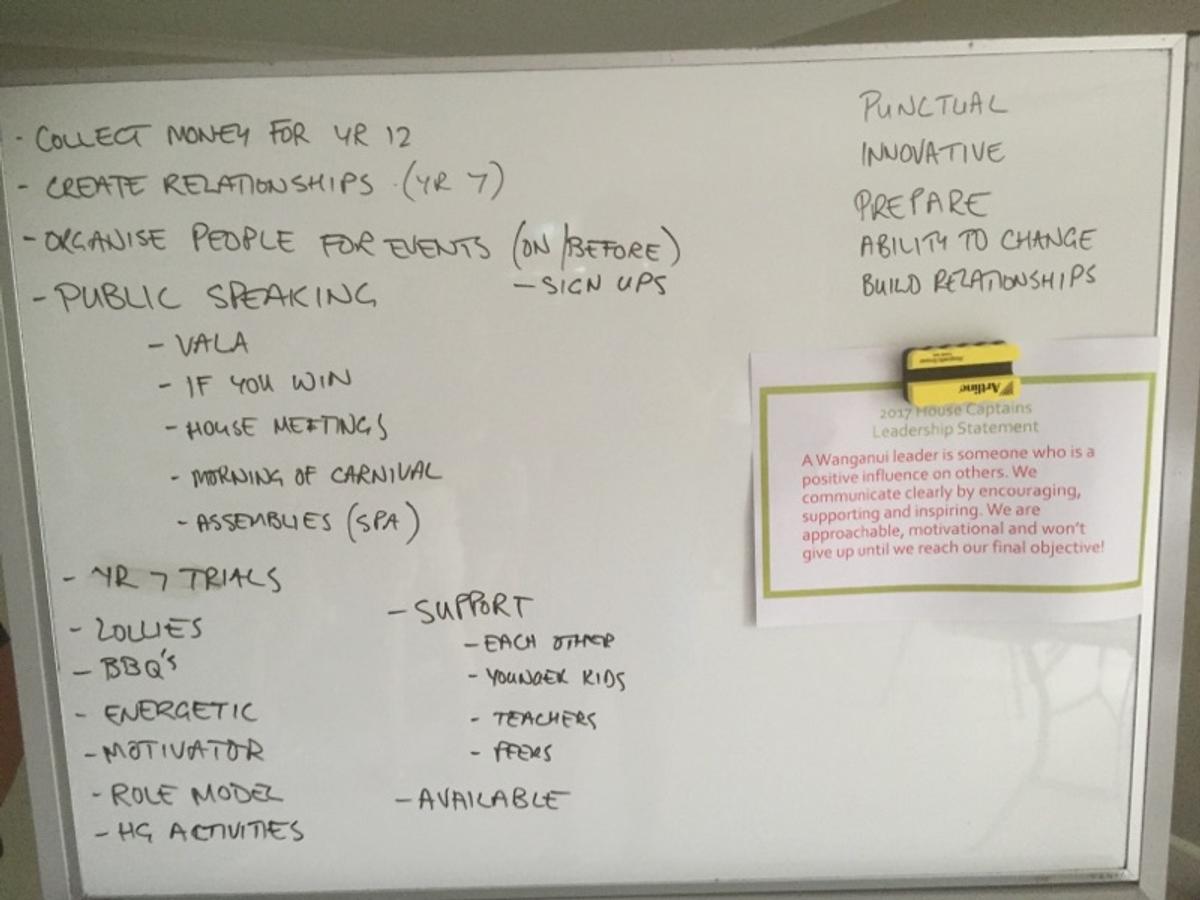 - COLLECT MONEY FOR YR 12
- CREATE RELATIONSHIPS (YR 7)
- ORGANISE PEOPLE FOR EVENTS (ON/BEFORE)
- SIGN UPS
- PUBLIC SPEAKING
- VALA
- IF YOU WIN
- HOUSE MEETINGS
- MORNING OF CARNIVAL
- ASSEMBLIES (SPA)
- YR 7 TRIALS
- LOLLIES
- BBQ's
- ENERGETIC
- MOTIVATOR
- ROLE MODEL
- HG ACTIVITIES
- SUPPORT
- EACH OTHER
- YOUNGER KIDS
- TEACHERS
- PEERS
- AVAILABLE
PUNCTUAL
INNOVATIVE
PREPARE
ABILITY TO CHANGE
BUILD RELATIONSHIPS
Artline
2017 House Captains
Leadership Statement
A Wanganui leader is someone who is a
positive influence on others. We
communicate clearly by encouraging,
supporting and inspiring. We are
approachable, motivational and won't
give up until we reach our final objective!